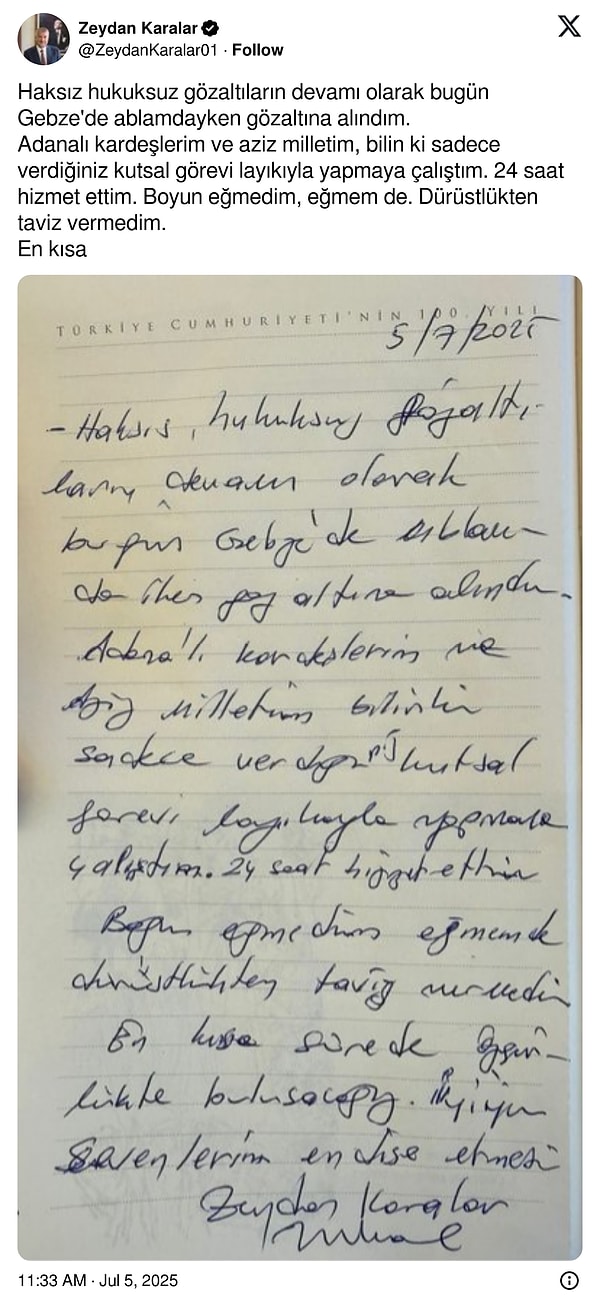 Zeydan Karalar
@ZeydanKaralar01 · Follow
Haksız hukuksuz gözaltıların devamı olarak bugün
Gebze'de ablamdayken gözaltına alındım.
Adanalı kardeşlerim ve aziz milletim, bilin ki sadece
verdiğiniz kutsal görevi layıkıyla yapmaya çalıştım. 24 saat
hizmet ettim. Boyun eğmedim, eğmem de. Dürüstlükten
taviz vermedim.
En kısa
TÜRKİYE CUMHURİYETİ'NİN 100. YILI
5/7/2025
- Haksız, hukuksuz gözaltı-
ların devamı olarak
bugün Gebze'de ablam-
da iken göz altına alındım.
Adana'lı kardeşlerim ve
Aziz milletim bilinki
sadece verdiğiniz kutsal
görevi layıkıyla yapmaya
çalıştım. 24 saat hizmet ettim
Boyun eğmedim eğmemde
dürüstlükten taviz vermedim
En kısa sürede özgür-
lükte buluşacağız. İyiyim
Sevenlerim endişe etmesin
Zeydan Karalar
11:33 AM · Jul 5, 2025